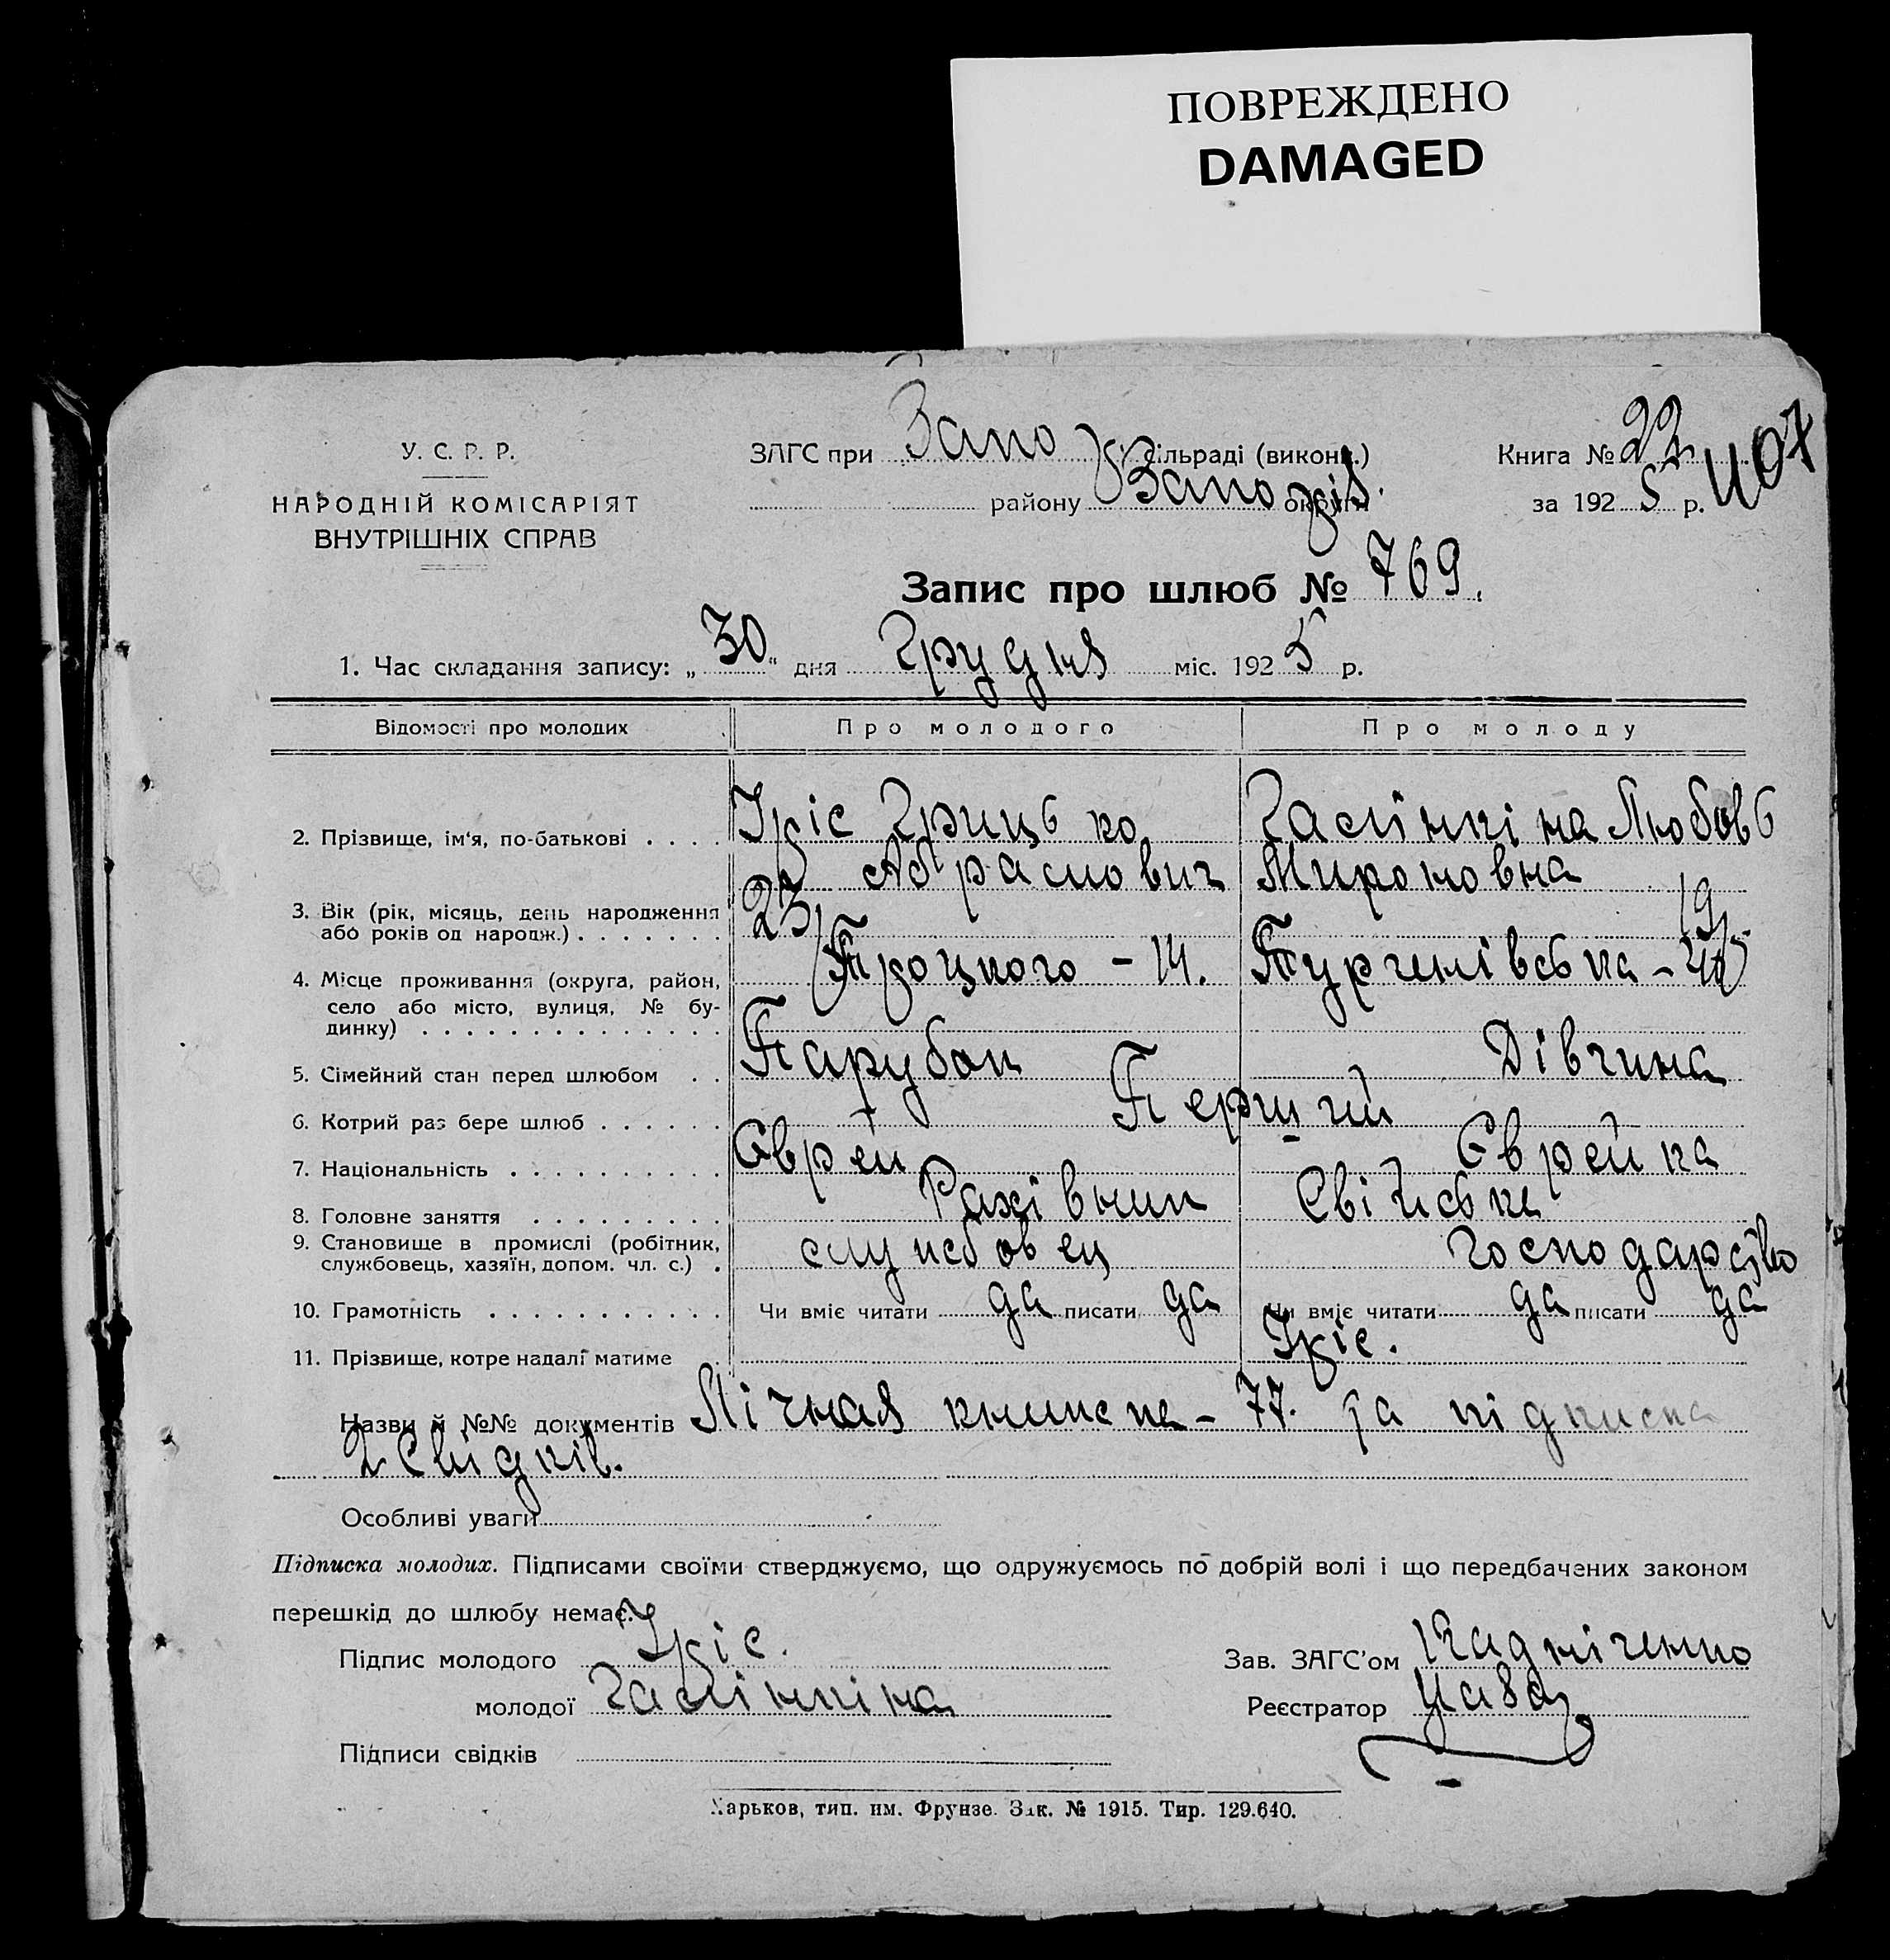 ПОВРЕЖДЕНО
DAMAGED
У. С. Р. Р.
НАРОДНІЙ КОМІСАРІЯТ
ВНУТРІШНІХ СПРАВ
ЗАГС при Запо сільраді (виконк.)
району Запоріз. округи
Книга № 22
за 1925 р.
1107
Запис про шлюб № 769.
1. Час складання запису: „30" дня Грудня міс. 1925 р.
Відомості про молодих Про молодого Про молоду
2. Прізвище, ім'я, по-батькові Ікріс Грицько Абрамович Гасінкіна Любовь Мироновна
3. Вік (рік, місяць, день народження або років од народж.) 23 19
4. Місце проживання (округа, район, село або місто, вулиця, № будинку) Троцкого - 14. Тургенівська - 40
5. Сімейний стан перед шлюбом Парубок Дівчина
6. Котрий раз бере шлюб Перший
7. Національність Єврей Єврейка
8. Головне заняття Рахівник Свійське
9. Становище в промислі (робітник, службовець, хазяїн, допом. чл. с.) службовец господарство
10. Грамотність Чи вміє читати да писати да Чи вміє читати да писати да
11. Прізвище, котре надалі матиме Ікріс.
Назви й №№ документів Лічная книжка - 77. та підписка
2 свідків.
Особливі уваги
Підписка молодих. Підписами своїми стверджуємо, що одружуємось по добрій волі і що передбачених законом
перешкід до шлюбу немає.
Підпис молодого Ікріс.
молодої Гасінкіна
Підписи свідків
Зав. ЗАГС'ом Кадніченко
Реєстратор
Харьков, тип. им. Фрунзе. Зак. № 1915. Тир. 129.640.